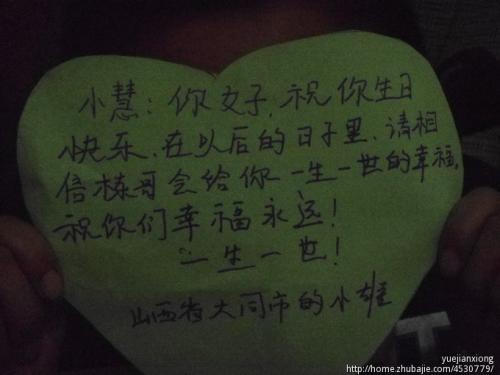 小慧：你好，祝你生日
快乐、在以后的日子里、请相
信栋哥会给你一生一世的幸福，
祝你们幸福永远！
一生一世！
山西省大同市的小雄
yuejianxiong
http://home.zhubajie.com/4530779/